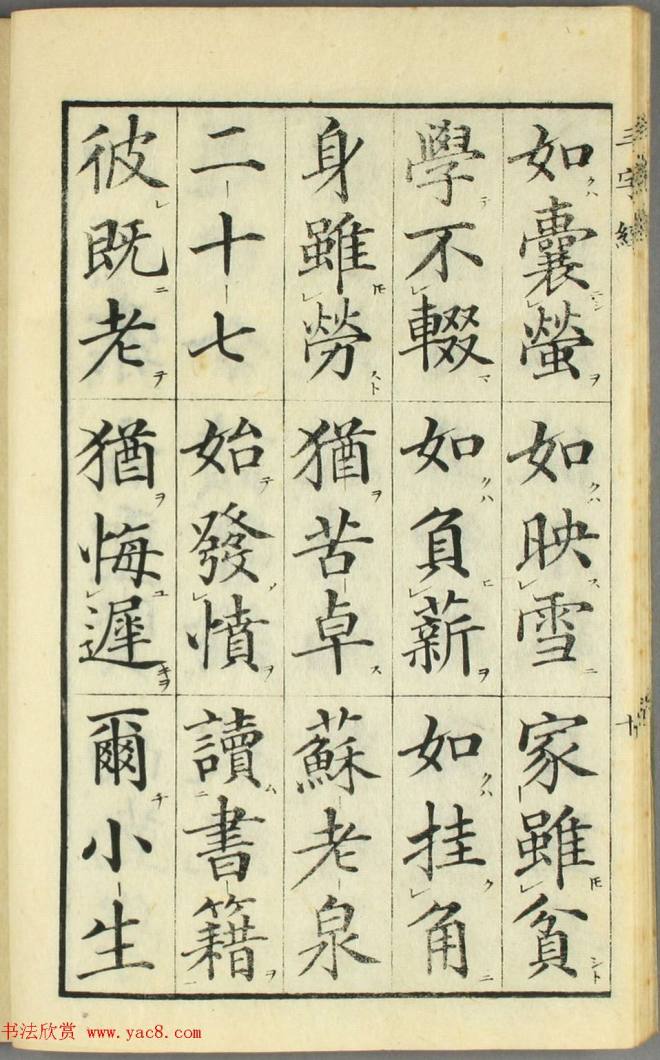 如囊螢如映雪家雖貧
學不輟如負薪如挂角
身雖勞猶苦卓蘇老泉
二十七始發憤讀書籍
彼既老猶悔遲爾小生
三字經
十
书法欣赏 www.yac8.com